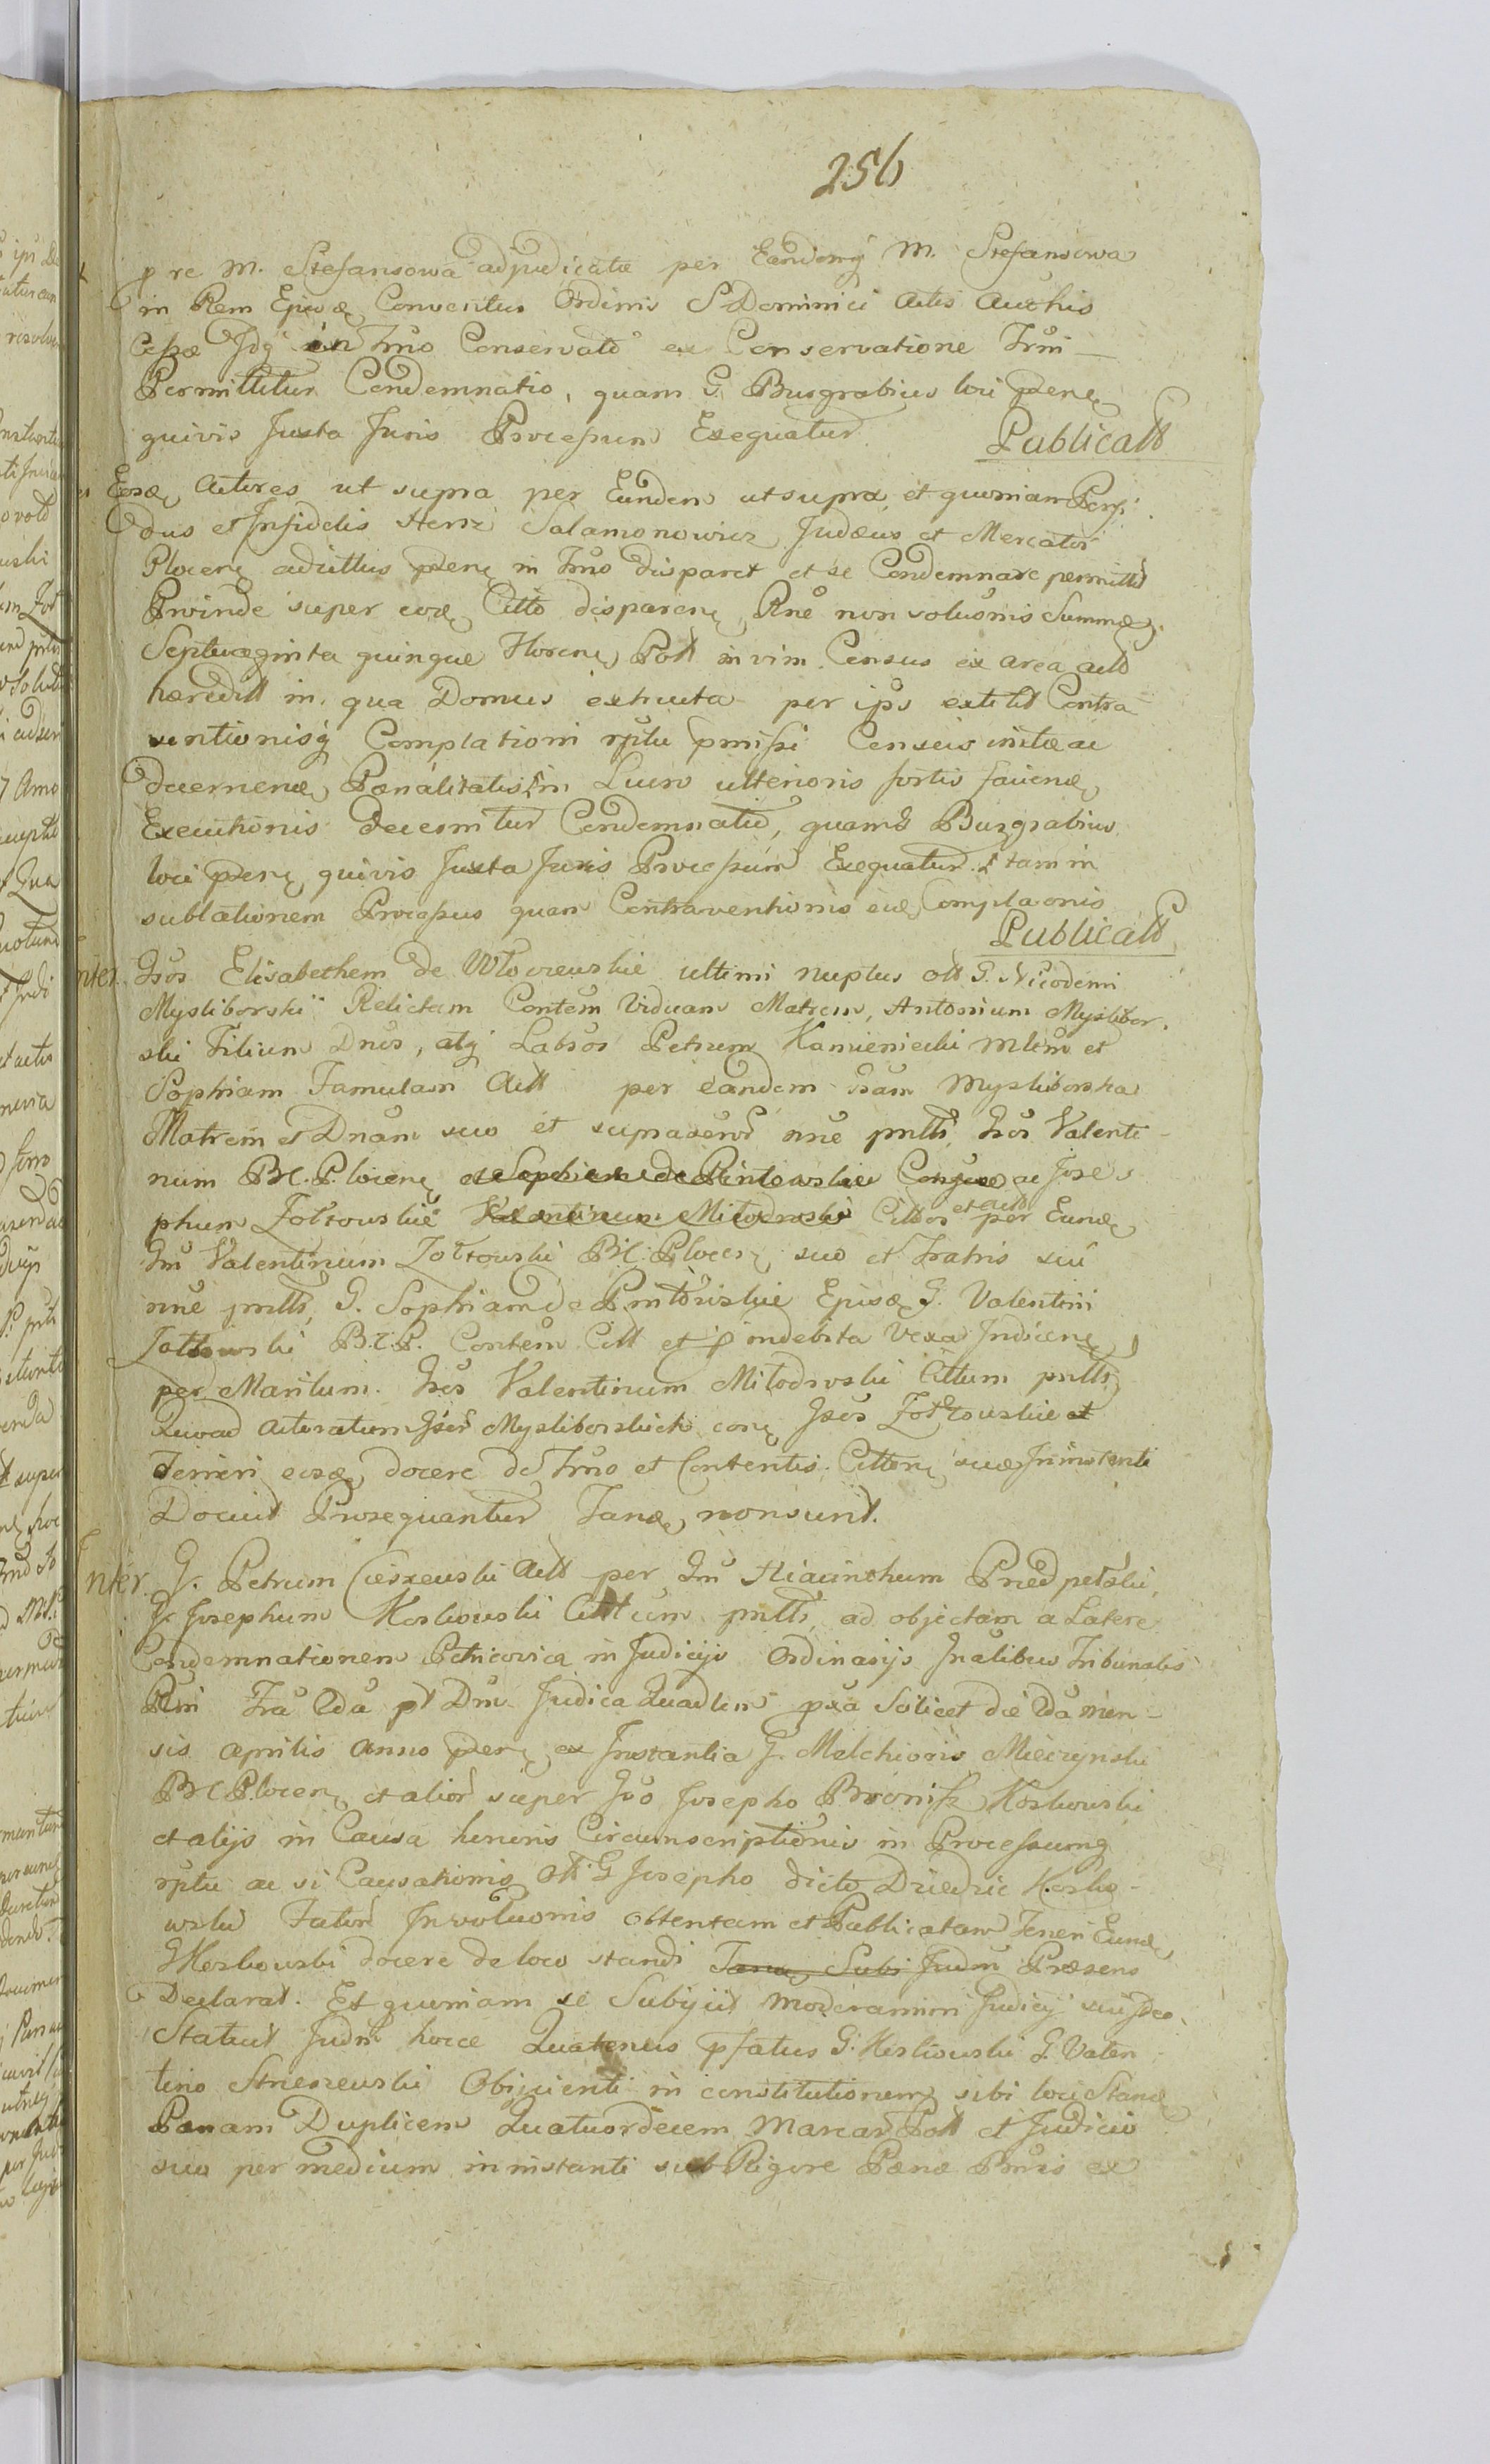 256
p re M. Stefansowa adjudicatæ per Eandemq M. Stefansowa
in Rem Ejusdę Conventus Ordinis S Dominici Actis Authis
Cessæ Idq in Trno Conservato ex Conservatione Trmi
Permittitur Condemnatio, quam G. Burgrabius loci Præsenę
quivis Juxta Juris Processum Exequatur.
Publicatt
Eosdę Actores ut supra per Eundem ut supra, et quoniam Perfi-
dus et Infidelis Herz Salamonowicz Judæus et Mercator
Plocenę adcittus Præsenę in Trno disparet et se Condemnare permittit
Proinde super eodę Citto disparenę Rne non solutionis Summæ
Septuaginta quinque Florenę Poll in vim Census ex area actt
hæreditt in qua Domus extructa per ipsū extitit Contra
ventionisq Complationi rptu pmissi Census initæ ac
decernendę Pænalitatis in Lucro ulterioris fortis faciendę
Executionis decernitur Condemnatio, quam G Burgrabius
loci Præsenę quivis Juxta Juris Processum Exequatur tam in
sublationem Processus quam Contraventionis ejusdę Complaonis
Publicatt
Inter Gsos Elisabetham de Włoczewskie ultimi nuptus ott G. Nicodemi
Mysliborski Relictam Contem Viduam Matrem, Antonium Myslibor-
ski Filium Dnos, atq Labsos Petrum Kamieniecki Mlem et
Sophiam Famulam Actt per eandem Gsam Mysliborska
Matrem et Dnam suo et suprascror nne pntts, Gsos Valenti-
num B.C. Plocenę et Sophiam de Pintowskie Conjuges ac Jose-
phum Żołtowskie Valentinum Miłodroski Cittos et actt per Eundę
Gm Valentinum Żołtowski B.C. Plocenę suo et Fratris sui
nne pntts, G. Sophiam de Pintowskie Ejusdę G. Valentini
Żołtowski B.C.P. Contem Citt et p indebita vexa Judicenę
per Maritum. Gsos Valentinum Miłodroski Cittum pntts
Quoad Actoratum Gsor Mysliborskich conę Gsos Żołtowskie et
Teneri eosdę docere de Trno et Contentis Cittonę suæ In instanti
Docuit Prosequantur Tandę non sunt.
Inter G. Petrum Cieszewski Actt per Gm Hiacinthum Przedpełski,
G. Josephum Koskowski Cittum pntts, ad objectam a Latere
Condemnationem Petricoviæ in Judicijs Ordinarijs Gnalibus Tribunalis
Rni Fra 2da pt Dm. Judica Quadlem pxa Scilicet die 2da men-
sis Aprilis Anno Præsenę ex Instantia G. Melchioris Mieczynski
BC Plocenę et alior super Gso Josepho Bronisz Koskowski
et alijs in Causa honoris Circumscriptionis in Processumq
rptu ac si Causationis ott G Josepho dicto Driedzic Kosko-
wski Fator Involutionis obtentam et Publicatam Teneri Eundę
G Koskowski docere de loco standi Tandę Subi Judm Præsens
Declarat. Et quoniam se Subijit moderamini Judicij suig Deo.
Statuit Judm hocce Quatenus pfatus G. Koskowski G. Valen-
tino Strzeszewski Obijcienti in constitutionem sibi loci Standi
Pænam Duplicem Quatuordecem Marcar Poll et Judicio
suo per medium in instanti sub Rigore Pænæ Bnis ex